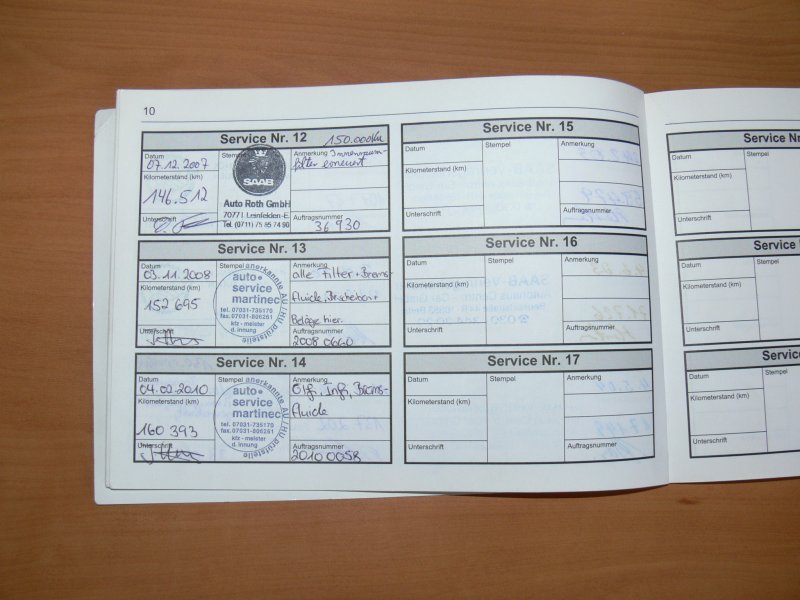 10
Service Nr. 12 150.000Km
Datum Stempel Anmerkung
07.12.2007
filter erneuert
Kilometerstand (km)
146.512
SAAB
Auto Roth GmbH
70771 Leinfelden-E.
Tel. (0711) 75 85 74 90
Unterschrift Auftragsnummer
36 930
Service Nr. 13
Datum Stempel Anmerkung
03.11.2008 alle Filter + Brems-
Kilometerstand (km)
fluide, Bscheiben +
152 695
Beläge hier.
anerkannte AU / HU prüfstelle
auto-
service
martinec
tel. 07031-735170
fax. 07031-806261
kfz - meister
d. innung
Unterschrift Auftragsnummer
2008 0640
Service Nr. 14
Datum Stempel Anmerkung
04.02.2010 Ölf., Inf., Brems-
Kilometerstand (km) fluide
160 393
anerkannte AU / HU prüfstelle
auto-
service
martinec
tel. 07031-735170
fax. 07031-806261
kfz - meister
d. innung
Unterschrift Auftragsnummer
2010 0058
Service Nr. 15
Datum Stempel Anmerkung
Kilometerstand (km)
Unterschrift Auftragsnummer
Service Nr. 16
Datum Stempel Anmerkung
Kilometerstand (km)
Unterschrift Auftragsnummer
Service Nr. 17
Datum Stempel Anmerkung
Kilometerstand (km)
Unterschrift Auftragsnummer
Service N
Datum Stempel
Kilometerstand (km)
Unterschrift
Service
Datum Stempel
Kilometerstand (km)
Unterschrift
Service
Datum Stempel
Kilometerstand (km)
Unterschrift